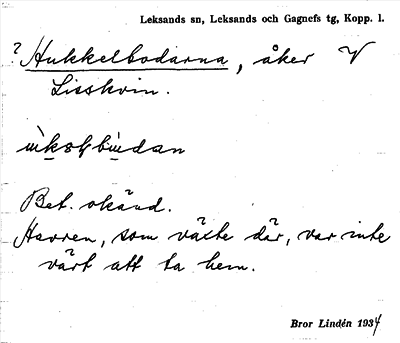 Leksands sn, Leksands och Gagnefs tg, Kopp. l.
? Hukkelbodarna, åker V
Lisskvin.
Bet. okänd.
Havren, som växte där, var inte
värt att ta hem.
Bror Lindén 1934